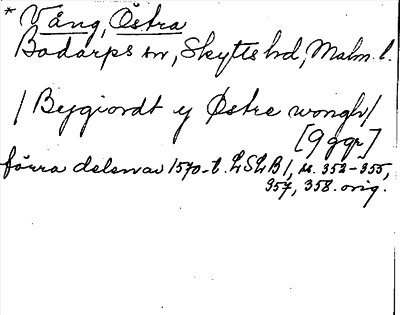 * Vång, Östra
Bodarps sn, Skytts hd, Malm. l.
/ Bygiordt y Østre wongh /
[9 ggr]
förra delen av 1570-t. LSLB 1, s. 352-355,
357, 358. orig.